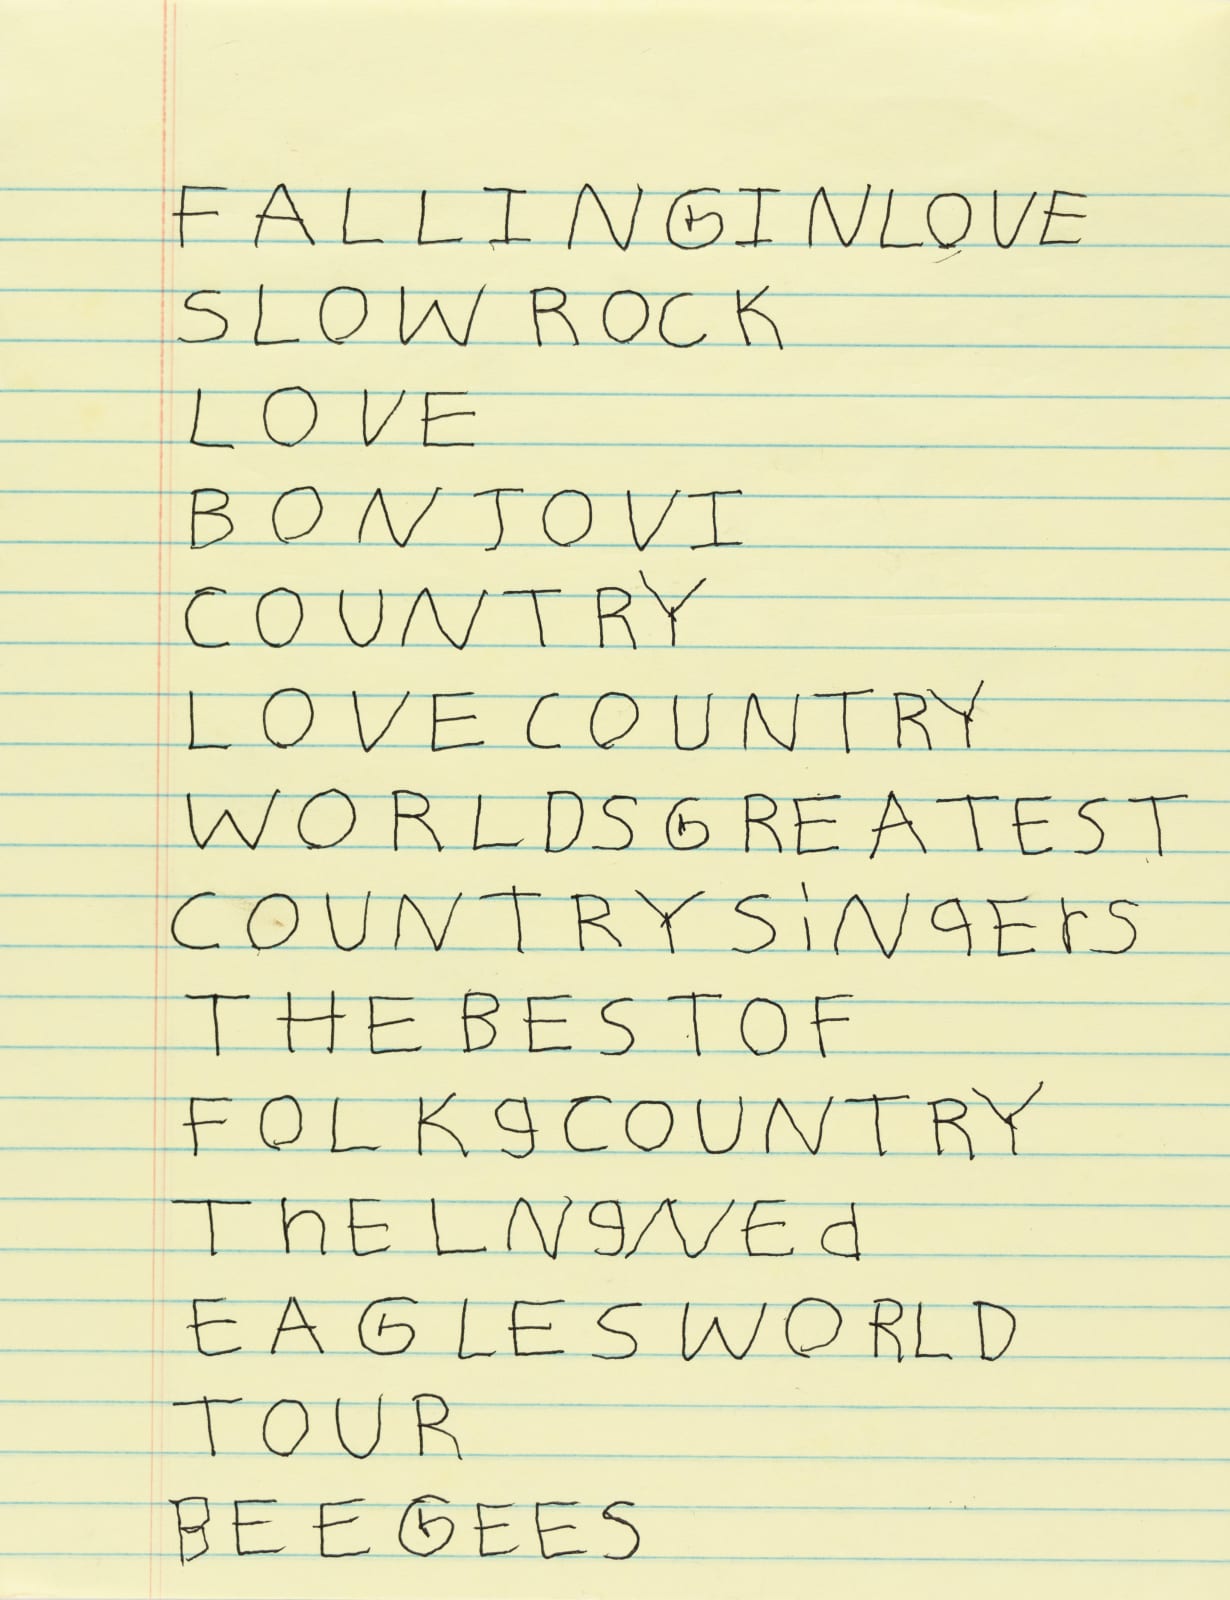 FALLINGINLOVE
SLOW ROCK
LOVE
BON JOVI
COUNTRY
LOVE COUNTRY
WORLDS GREATEST
COUNTRY SiNgErS
THE BEST OF
FOLK gCOUNTRY
ThE LNgNEd
EAGLES WORLD
TOUR
BEE GEES